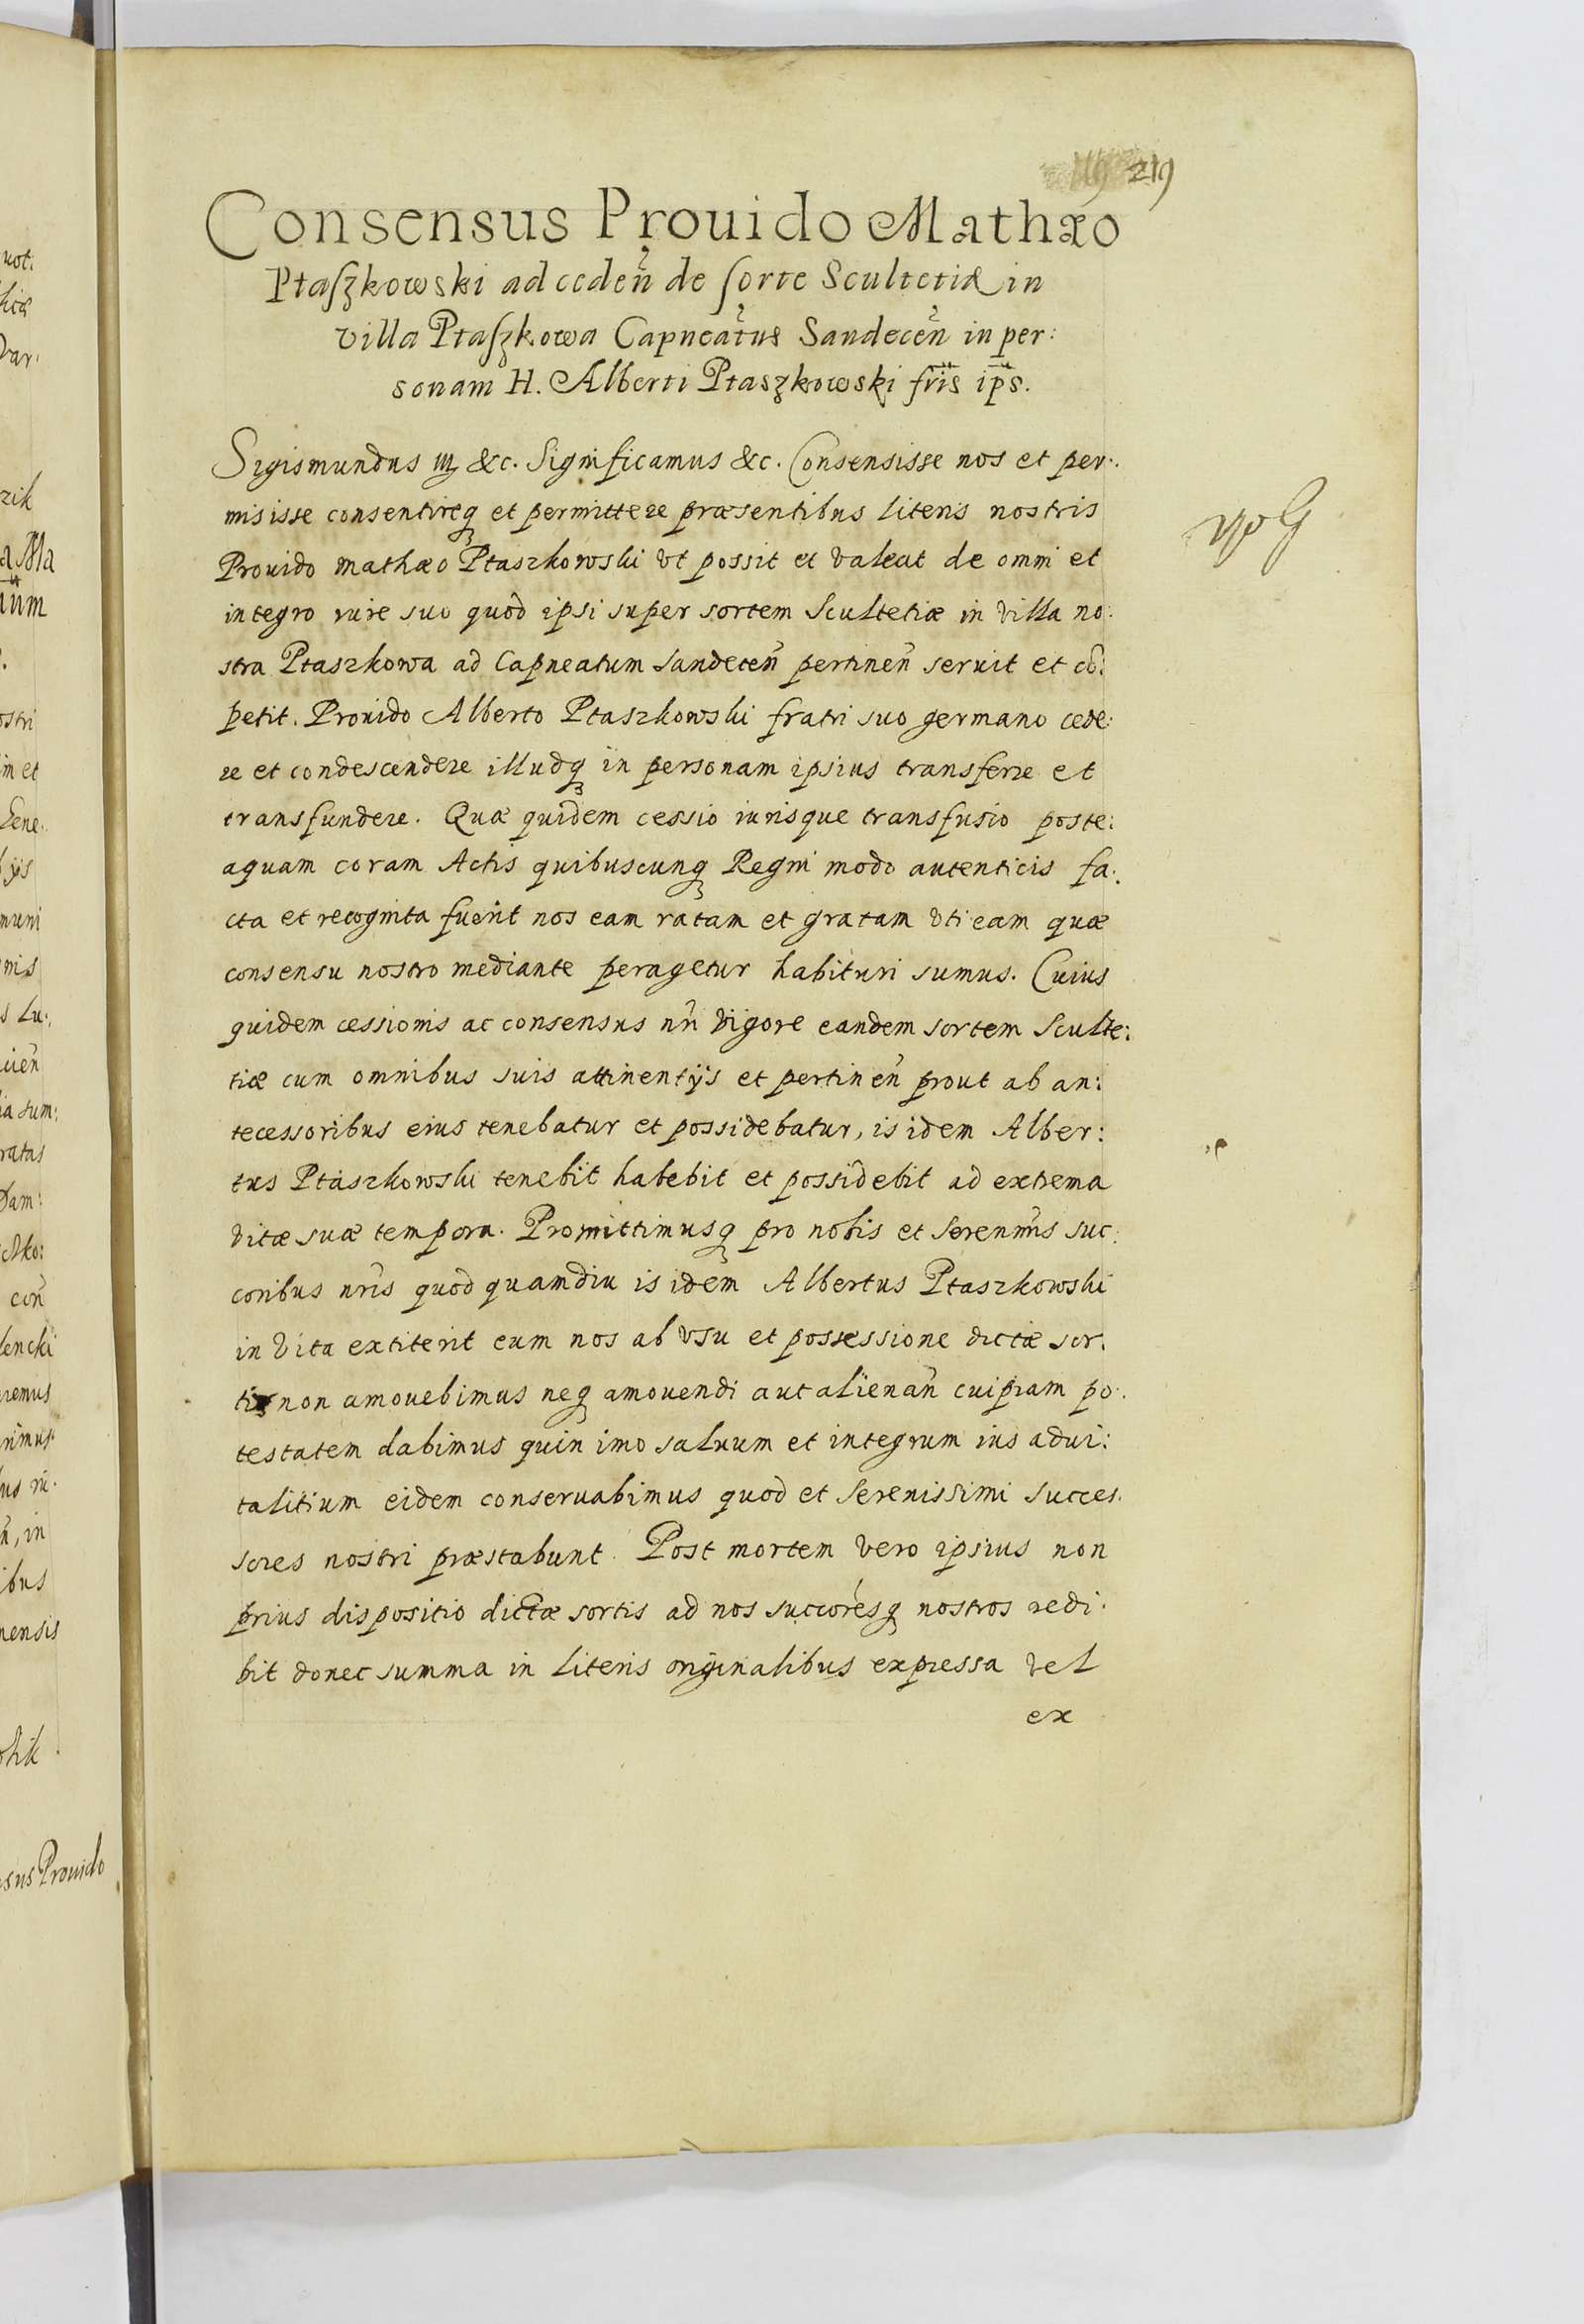 219
Consensus Prouido Mathæo
Ptaszkowski ad ceden̄ de sorte Scultetiæ in
villa Ptaszkowa Capneatus Sandecen̄ in per:
sonam H. Alberti Ptaszkowski fr̄is ip̄s.
Sigismundus III &c. Significamus &c. Consensisse nos et per:
misisse consentireq et permittere præsentibus literis nostris
Prouido Mathæo Ptaszkowski vt possit et valeat de omni et
integro iure suo quod ipsi super sortem Scultetiæ in villa no:
stra Ptaszkowa ad Capneatum Sandecen̄ pertinen̄ seruit et cō:
petit. Prouido Alberto Ptaszkowski fratri suo germano cede:
re et condescendere illudq in personam ipsius transferre et
transfundere. Quæ quidem cessio iurisque transfusio poste:
aquam coram Actis quibuscunq Regni modo autenticis fa:
cta et recognita fuerit nos eam ratam et gratam vti eam quæ
consensu nostro mediante peragetur habituri sumus. Cuius
quidem cessionis ac consensus nr̄i vigore eandem sortem Sculte:
tiæ cum omnibus suis attinentijs et pertinen̄ prout ab an:
tecessoribus eius tenebatur et possidebatur, is idem Alber:
tus Ptaszkowski tenebit habebit et possidebit ad extrema
vitæ suæ tempora. Promittimusq pro nobis et Seren̄mis suc:
coribus nr̄is quod quamdiu is idem Albertus Ptaszkowski
in vita extiterit eum nos ab vsu et possessione dictæ sor:
tis non amouebimus neq amouendi aut alienan̄ cuipiam po:
testatem dabimus quin imo saluum et integrum ius adui:
talitium eidem conseruabimus quod et Serenissimi succes:
sores nostri præstabunt. Post mortem vero ipsius non
prius dispositio dictæ sortis ad nos succoresq nostros redi:
bit donec summa in literis originalibus expressa vel
ex